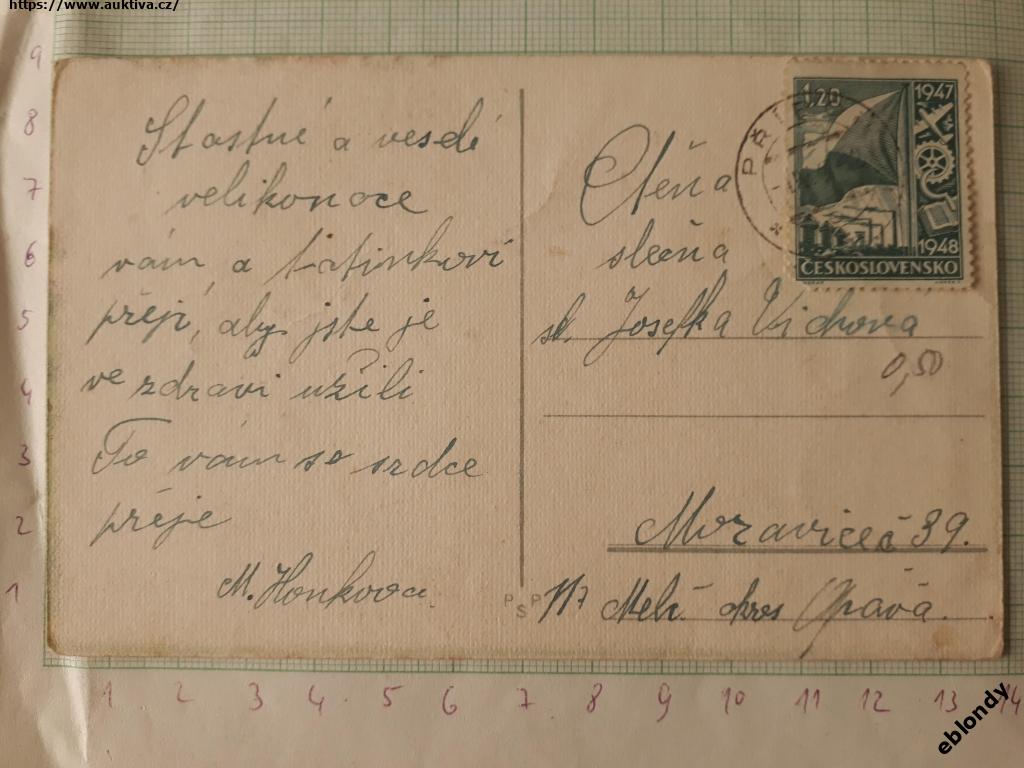 https://www.auktiva.cz/
Stastné a veselé
velikonoce
vám a tatinkovi
přeji, aby jste je
ve zdravi užili
To vám se srdce
přeje
M. Honkova.
Ctěna
slečna
sl. Josefka Vichova
0,50
Moravice č 39.
Melč okres Opava.
PSP
1,20
1947
1948
ČESKOSLOVENSKO
9
8
7
6
5
4
3
2
1
1 2 3 4 5 6 7 8 9 10 11 12 13 14
eblondy